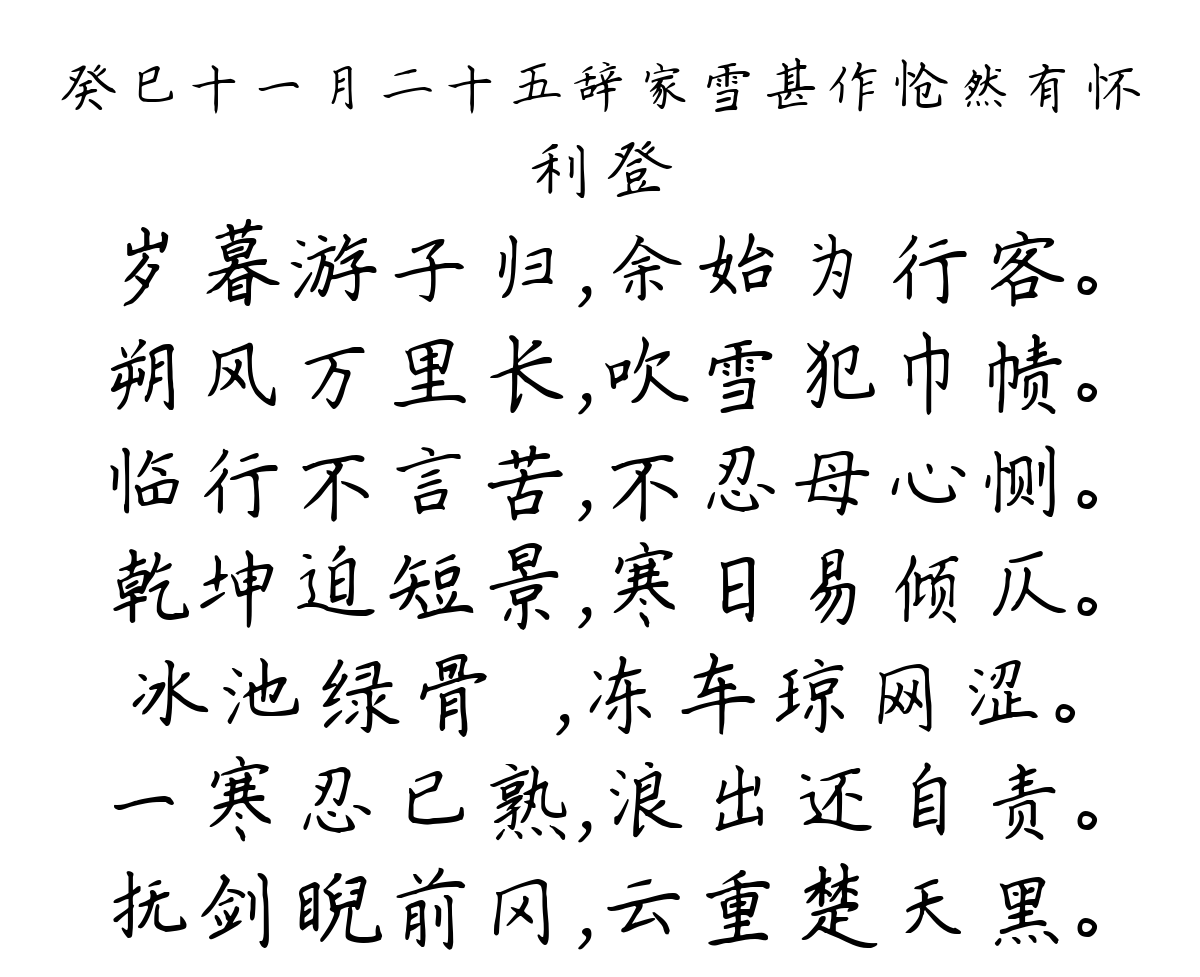 癸巳十一月二十五辞家雪甚作怆然有怀
利登
岁暮游子归,余始为行客。
朔风万里长,吹雪犯巾帻。
临行不言苦,不忍母心恻。
乾坤迫短景,寒日易倾仄。
冰池绿骨 ,冻车琼网涩。
一寒忍已熟,浪出还自责。
抚剑睨前冈,云重楚天黑。